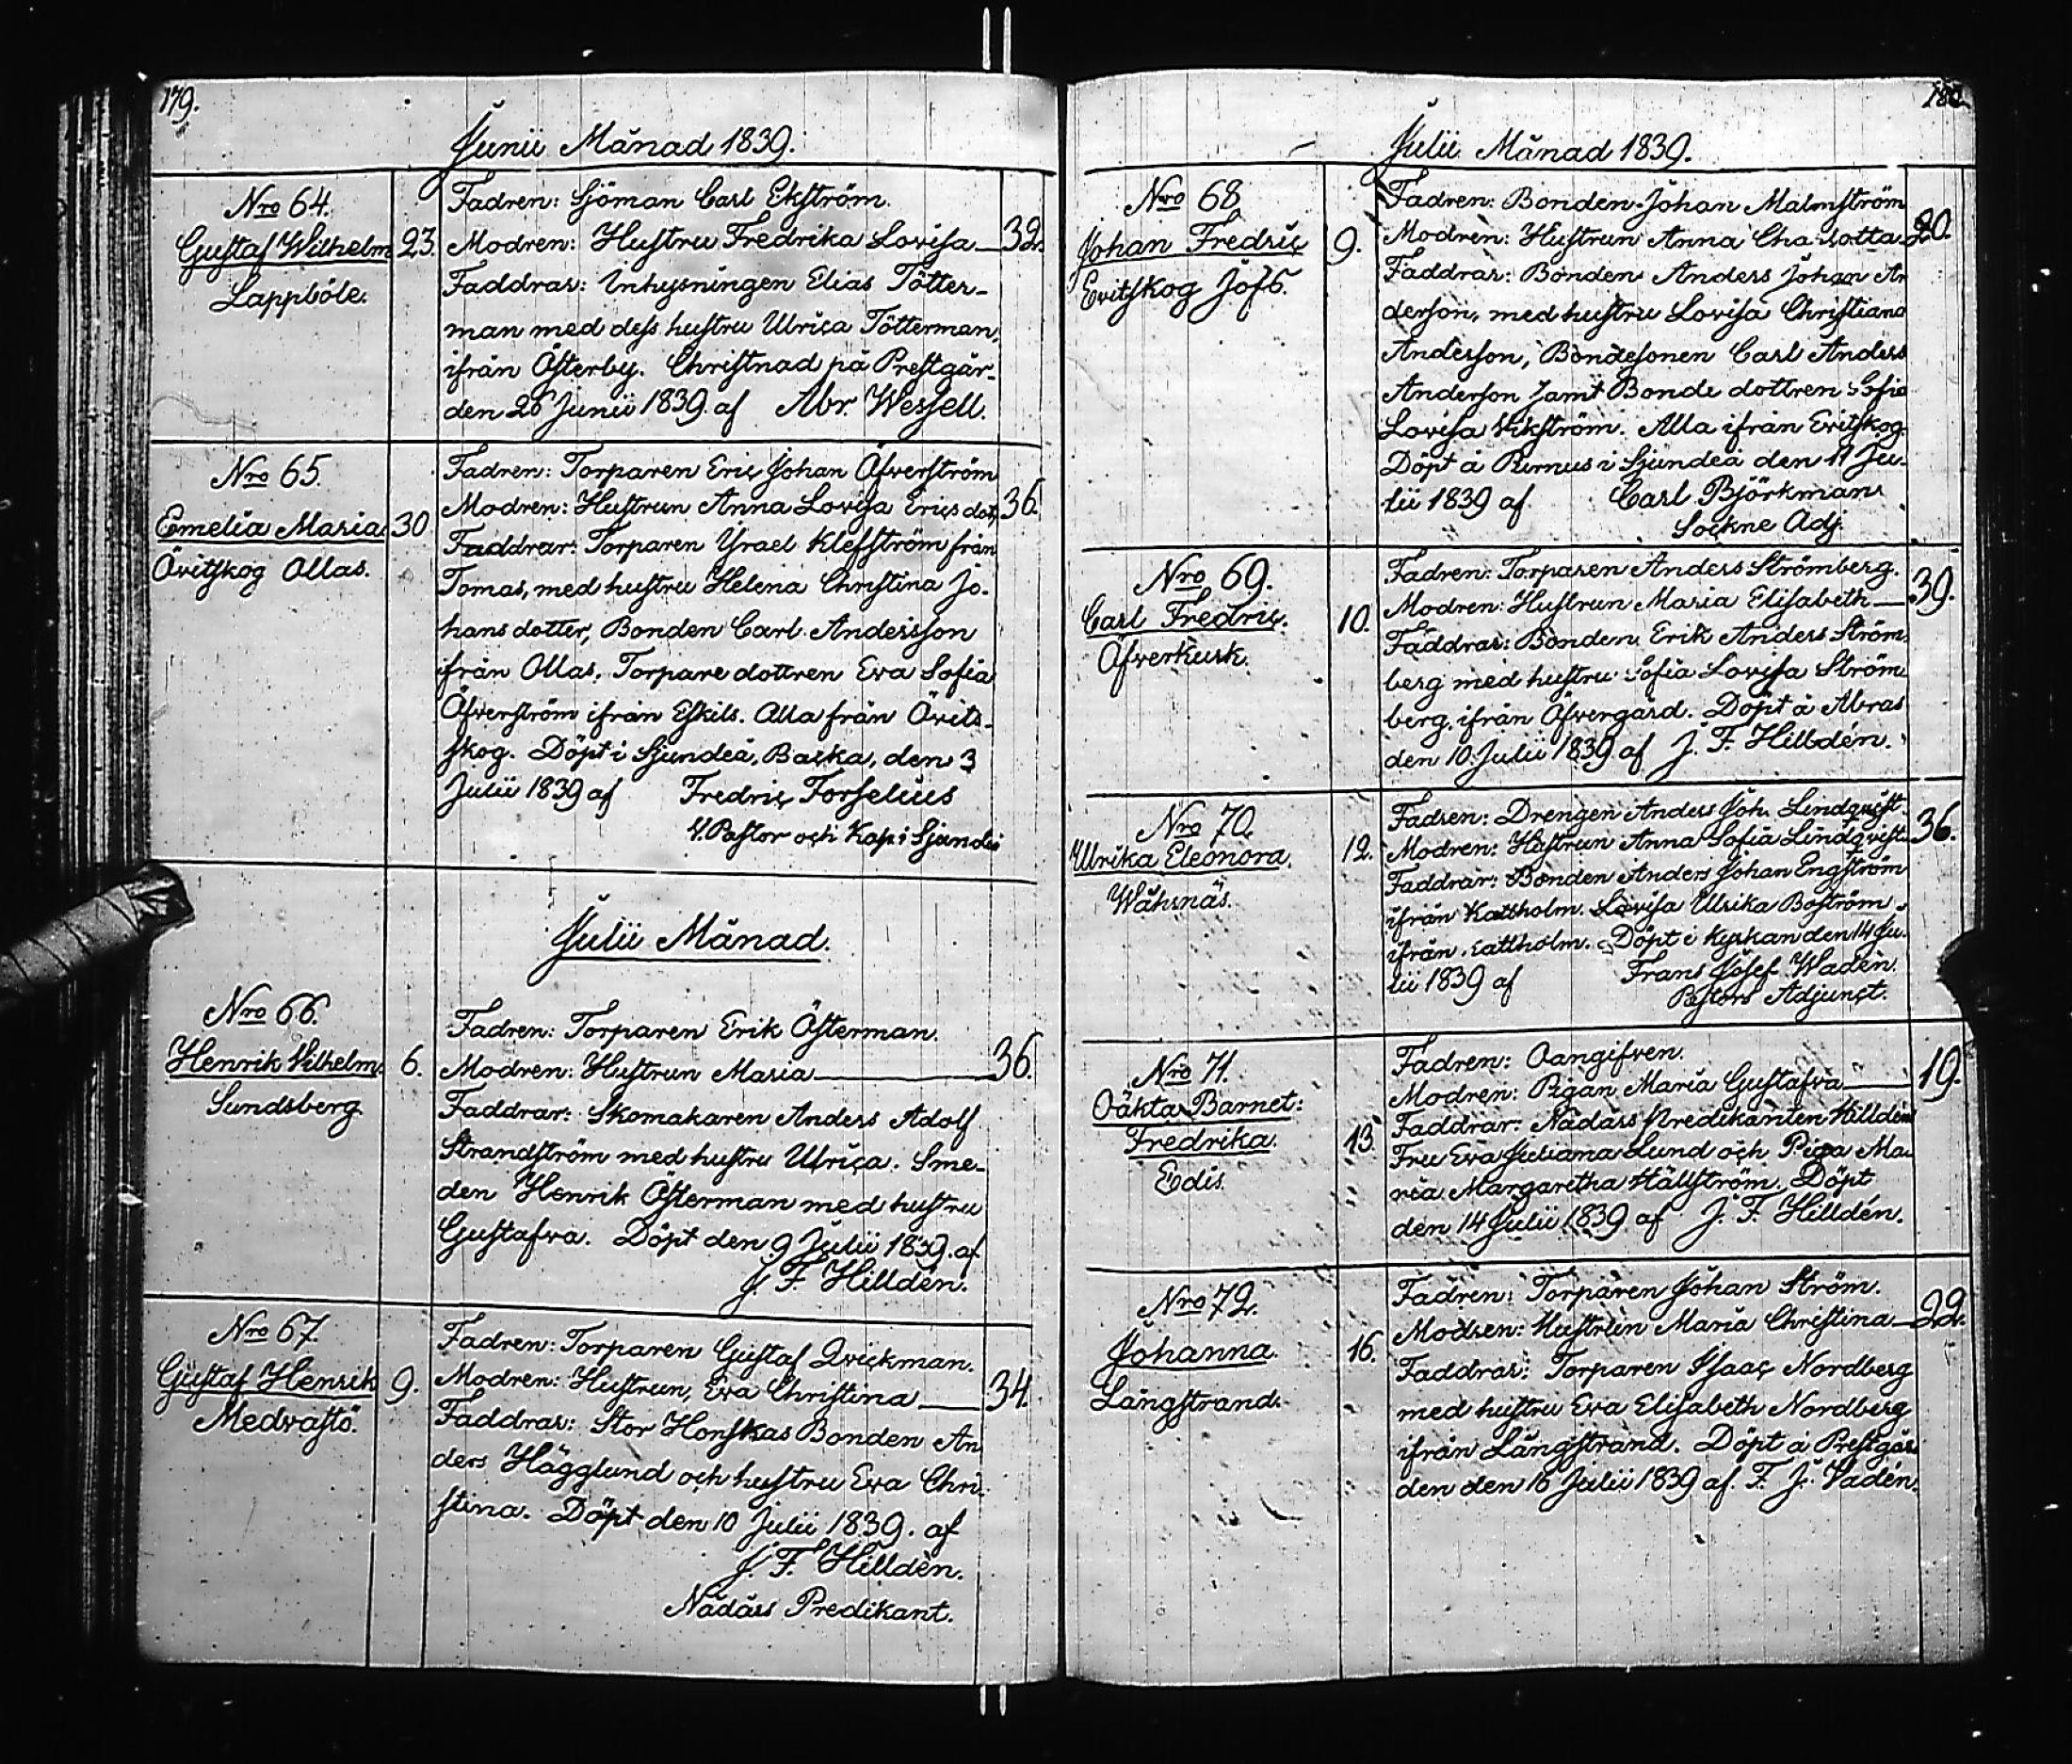 179.
Junii Månad 1839.
Nro 64.
Gustaf Wilhelm
Lappböle.
23.
Fadren: Sjöman Carl Ekström.
Modren: Hustru Fredrika Lovisa
32.
Faddrar: Inhysningen Elias Tötter-
man med dess hustru Ulrica Tötterman,
ifrån Österby. Christnad på Prestgår-
den 26 Junii 1839. af Abr. Wessell.
Nro 65.
Emelia Maria
Övitskog Ollas.
30
Fadren: Torparen Eric Johan Öfverström
Modren: Hustrun Anna Lovisa Erics dot,
36.
Faddrar: Torparen Ysrael Klefström från
Tomas, med hustru Helena Christina Jo-
hans dotter, Bonden Carl Andersson
ifrån Ollas, Torpare dottren Eva Sofia
Öfverström ifrån Eskils. Alla från Övits-
skog. Döpt i Sjundeå, Backa, den 3
Julii 1839 af Fredric Forselius
V. Pastor och Kap i Sjundeå
Julii Månad.
Nro 66.
Henrik Vilhelm.
Sundsberg.
6.
Fadren: Torparen Erik Österman.
Modren: Hustrun Maria
36.
Faddrar: Skomakaren Anders Adolf
Strandström med hustru Ulrica. Sme-
den Henrik Österman med hustru
Gustafva. Döpt den 9 Julii 1839. af
J. F. Hilldén.
Nro 67.
Gustaf Henrik
Medvastö.
9.
Fadren: Torparen Gustaf Qvickman.
Modren: Hustrun, Eva Christina
34.
Faddrar: Stor Honskas Bonden An
ders Hägglund och hustru Eva Chri-
stina. Döpt den 10 Julii 1839. af
J. F. Hilldén.
Nådårs Predikant.
180.
Julii Månad 1839.
Nro 68
Johan Fredric
Evitskog Jofs.
9.
Fadren: Bonden Johan Malmström
Modren: Hustrun Anna Charlotta
20.
Faddrar: Bonden Anders Johan An
derson, med hustru Lovisa Christiana
Anderson, Bondesonen Carl Anders
Anderson samt Bonde dottren Sofia
Lovisa Vikström. Alla ifrån Evitskog.
Döpt å Purnus i Sjundeå den 11 Ju-
lii 1839 af Carl Björkman
Sockne Adj.
Nro 69.
Carl Fredric.
Öfverkurk.
10.
Fadren: Torparen Anders Strömberg.
Modren: Hustrun Maria Elisabeth
39.
Faddrar: Bonden Erik Anders Ström-
berg med hustru Sofia Lovisa Ström
berg, ifrån Öfvergård. Döpt å Abras
den 10 Julii 1839 af J. F. Hilldén.
Nro 70.
Ulrika Eleonora.
Wåhrnäs.
12.
Fadren: Drengen Anders Joh. Lindqvist
Modren: Hustrun Anna Sofia Lindqvist
36.
Faddrar: Bonden Anders Johan Engström
ifrån Kattholm. Lovisa Ulrika Boström
ifrån Kattholm. Döpt i Kyrkan den 14 Ju-
lii 1839 af Frans Josef Wadén.
Pastors Adjunct.
Nro 71.
Oäkta Barnet:
Fredrika.
Edis.
13.
Fadren: Oangifven.
Modren: Pigan Maria Gustafva
19.
Faddrar: Nådårs Predikanten Hilldén
Fru Eva Juliana Lund och Piga Ma-
ria Margaretha Hällström. Döpt
den 14 Julii 1839 af J. F. Hilldén.
Nro 72.
Johanna.
Långstrand.
16.
Fadren: Torparen Johan Ström.
Modren: Hustrun Maria Christina
22.
Faddrar: Torparen Isaac Nordberg
med hustru Eva Elisabeth Nordberg
ifrån Långstrand. Döpt å Prestgår
den den 16 Julii 1839 af. F. J. Vadén.